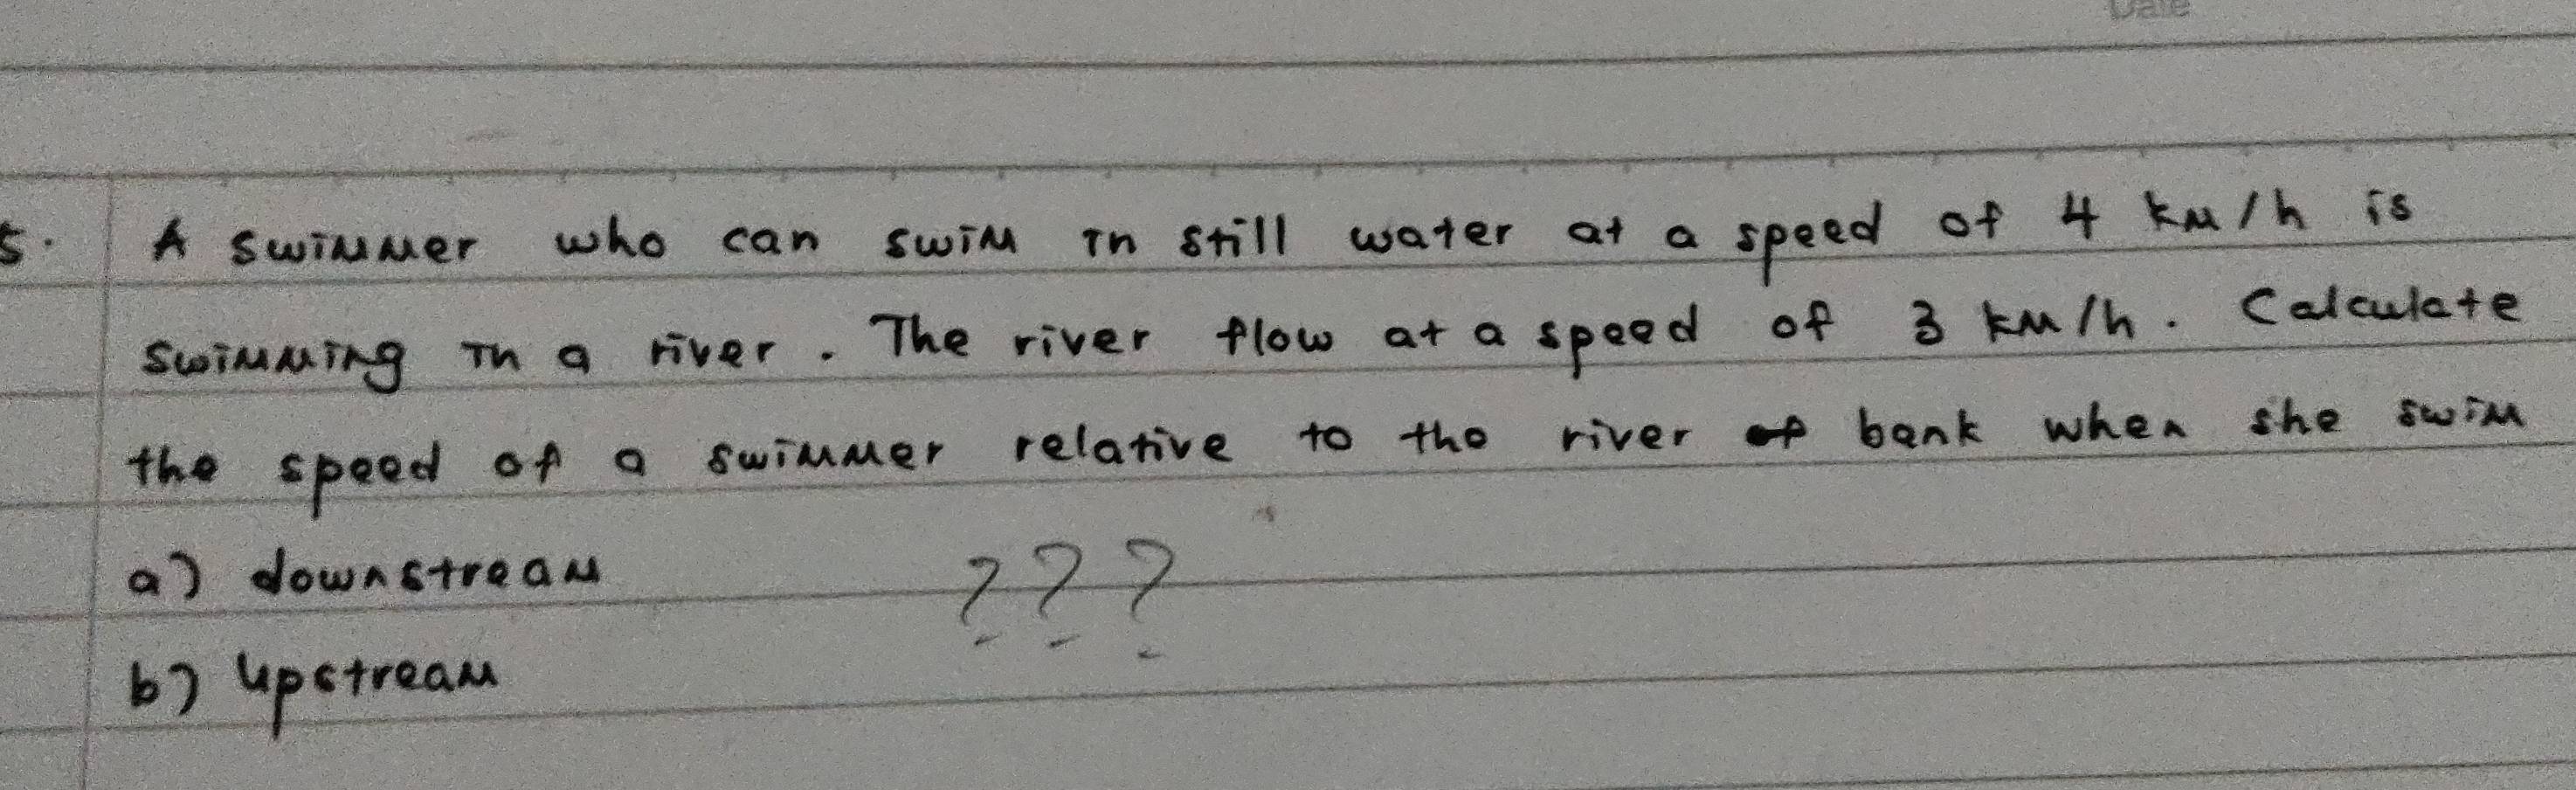 Date
5. A swimmer who can swim in still water at a speed of 4 km/h is
swimming in a river. The river flow at a speed of 3 km/h. Calculate
the speed of a swimmer relative to the river of bank when she swim
a) downstream ???
b) upstream